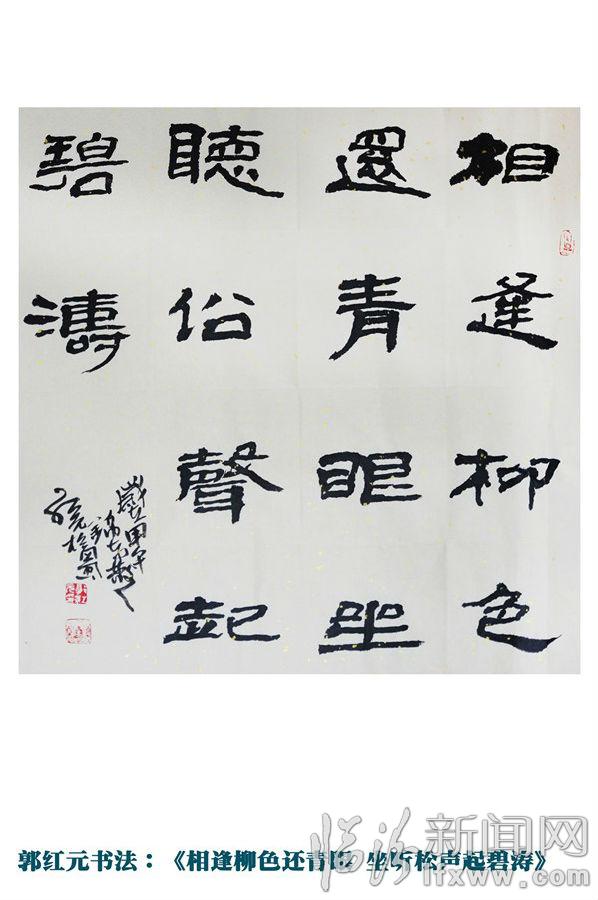 相逢柳色
還青眼坐
聽俗聲起
碧濤
歲在甲午
郭红元书法：《相逢柳色还青眼 坐听松声起碧涛》
临汾新闻网
www.lfxww.com